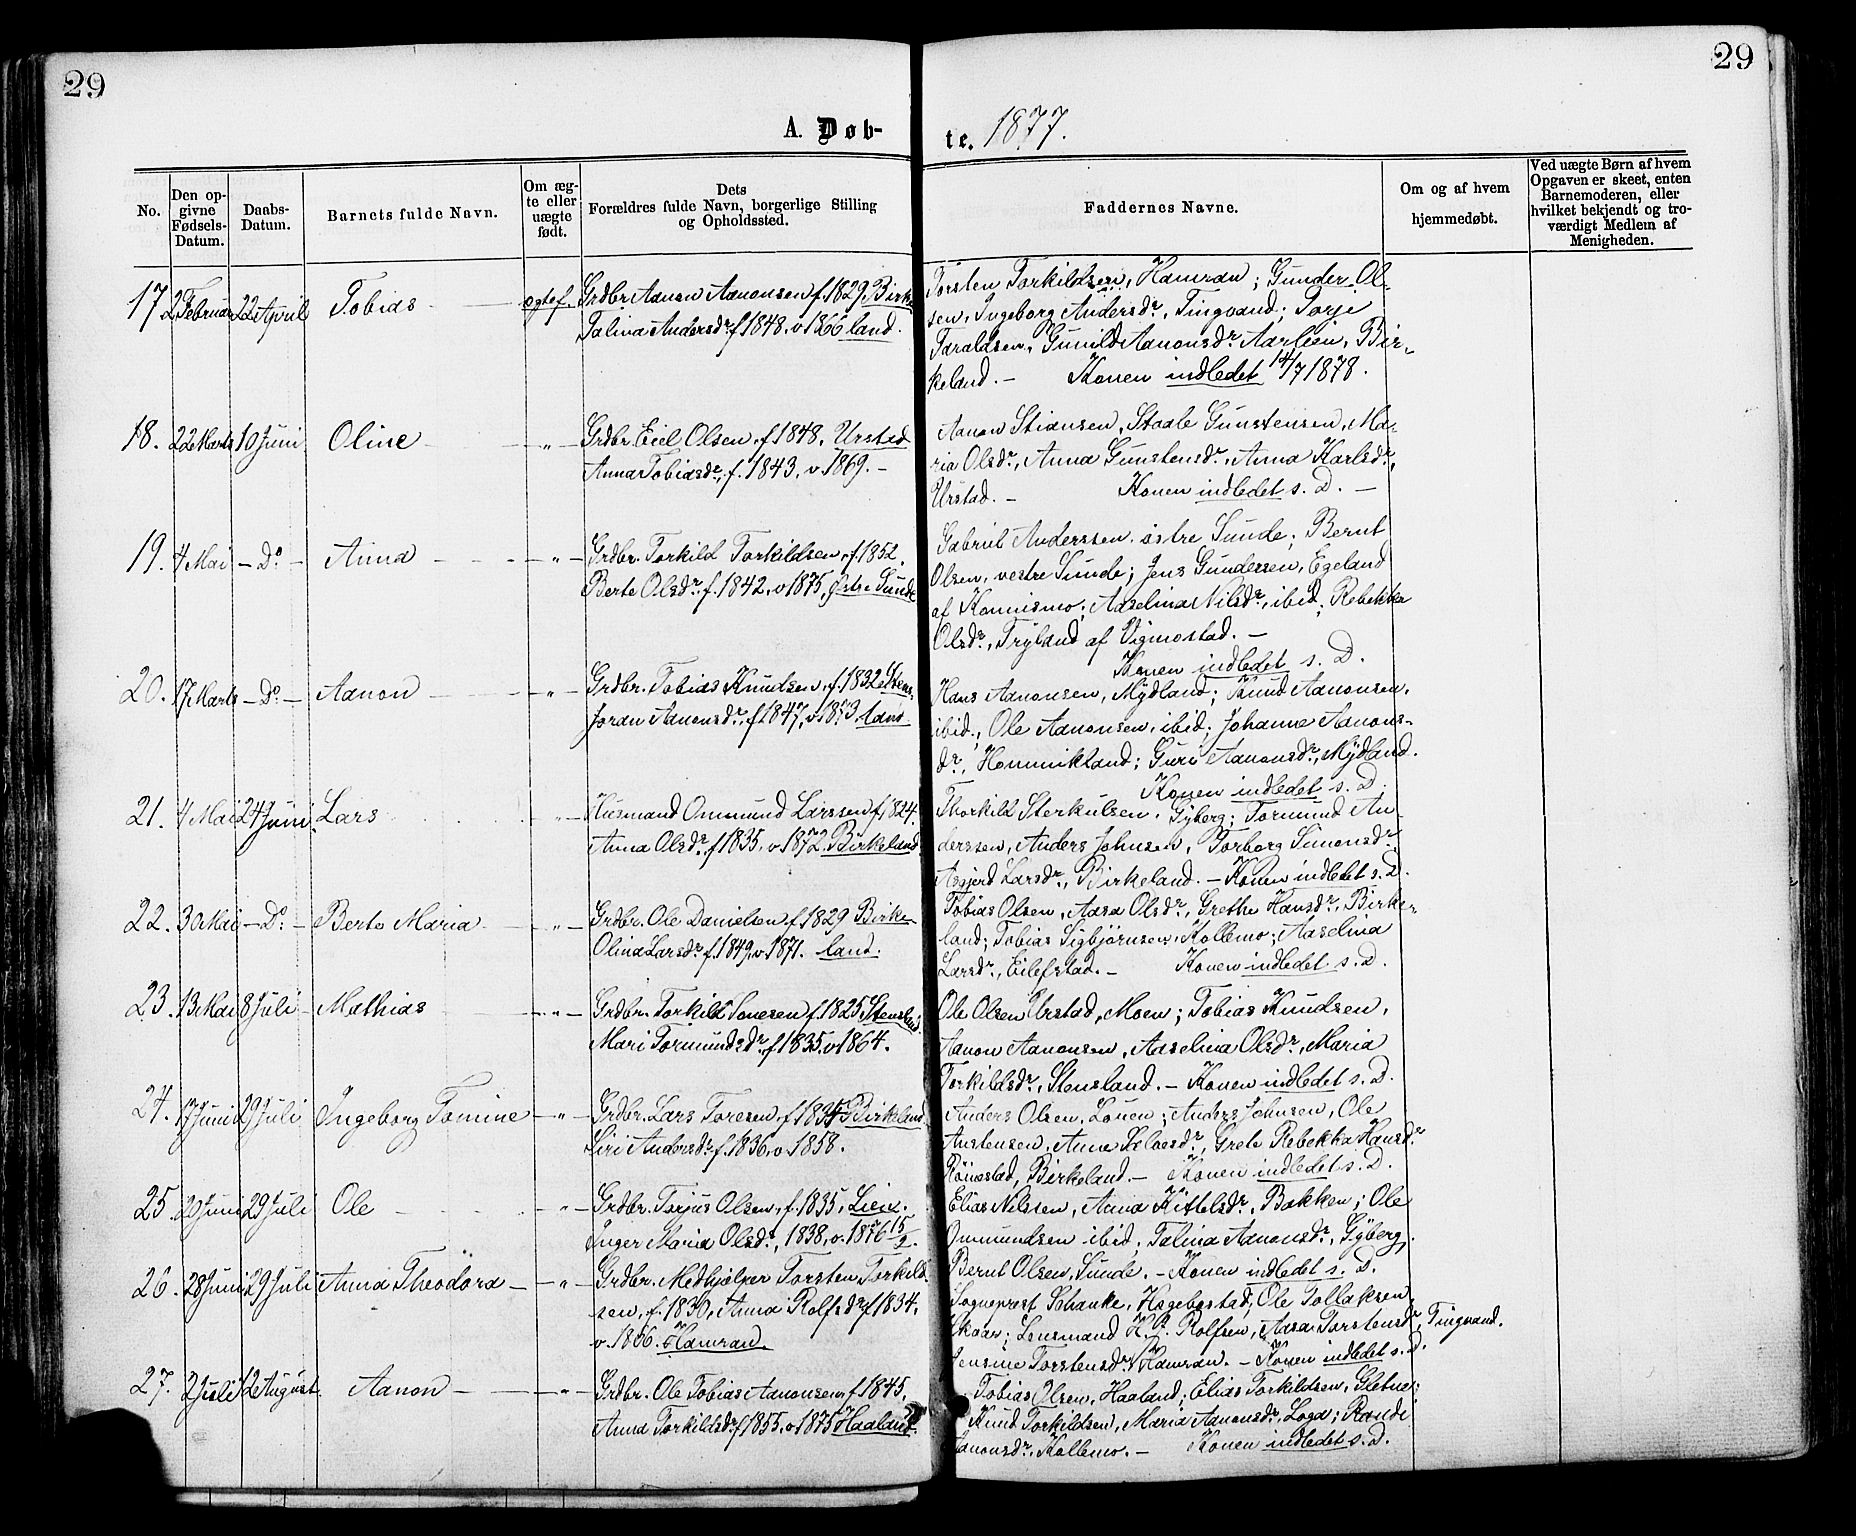 29
29
A. Døb-
te. 1877.
No.
Den op-
givne
Fødsels-
Datum.
Daabs-
Datum.
Barnets fulde Navn.
Om æg-
te eller
uægte
født.
Dets
Forældres fulde Navn, borgerlige Stilling
og Opholdssted.
Faddernes Navne.
Om og af hvem
hjemmedøbt.
Ved uægte Børn af hvem
Opgaven er skeet, enten
Barnemoderen, eller
hvilket bekjendt og tro-
værdigt Medlem af
Menigheden.
17 2 Februar 22 April Tobias ægtef. Grdbr. Aanon Aanonsen f. 1829 Birke-
Talina Andersdr. f 1848, v 1866 land.
Torsten Torkildsen, Hamran; Gunder Ol-
sen, Ingeborg Andersdr., Tingvand; Torje
Taraldsen, Gunild Aanonsdr. Aarlien, Bir-
keland. - Konen indledet 14/7 1878.
18. 22 Marts 10 Juni Oline - " - Grdbr. Eiel Olsen, f. 1848, Urstad
Anna Tobiasdr., f. 1843, v. 1869. -
Aanon Stiansen, Staale Gunstensen, Ma-
ria Olsdr., Anna Gunstensdr., Anna Karlsdr.,
Urstad. - Konen indledet s. D. -
19. 4 Mai - Do - Anna - " - Grdbr. Torkild Torkildsen, f. 1852,
Berte Olsdr. f. 1842, v 1875, østre Sunde
Gabriel Anderssen, østre Sunde; Bernt
Olsen, vestre Sunde; Jens Gundersen, Egeland
af Konnismo; Aaselina Nilsdr., ibid; Rebekka
Olsdr., Tryland af Vigmostad. -
Konen indledet s. D.
20. 17 Marts - Do - Aanon - " - Grdbr. Tobias Knutsen, f. 1832 Stens-
Joran Aanonsdr. f. 1847, v. 1873 land
Hans Aanonsen, Mydland; Knud Aanonsen,
ibid., Ole Aanonsen, ibid; Johanne Aanons-
dr., Hommikland; Guri Aanonsdr., Mydland.
Konen indledet s. D.
21. 4 Mai 24 Juni Lars - " - Husmand Ommund Larssen f, 1824.
Anna Olsdr. f 1835, v 1872. Birkeland
Thorkild Sterkulsen, Gyberg; Tormund An-
derssen, Anders Johnsen, Torborg Simonsdr.
Asgjerd Larsdr., Birkeland. - Konen indledet s. D.
22. 30 Mai - Do - Berte Maria - " - Grdbr. Ole Danielsen f. 1829 Birke-
Olina Larsdr. f. 1849, v. 1871. land.
Tobias Olsen, Aasa Olsdr., Grethe Hansdr., Birke-
land; Tobias Sigbjørnsen, Kollemo; Aaselina
Larsdr., Eilefstad. - Konen indledet s. D.
23. 13 Mai 8 Juli Mathias - " - Grdbr. Torkild Tonesen f. 1825 Stensland
Mari Tormundsdr. f 1835, v 1864.
Ole Olsen Urstad, Moen; Tobias Knudsen,
Aanon Aanonsen, Aaselina Olsdr., Maria
Torkildsdr., Stensland. - Konen indledet s. D.
24. 17 Juni 29 Juli Ingeborg Tomine - " - Grdbr. Lars Toresen, f 1834 Birkeland
Siri Andersdr. f. 1836, v 1858.
Anders Olsen, Louen; Anders Johnsen, Ole
Austensen, Anne Salvesdr., Grete Rebekka Hansdr.
Rönestad, Birkeland. - Konen indledet s. D.
25. 20 Juni 29 Juli Ole - " - Grdbr. Terjus Olsen, f. 1835, Lien.
Inger Maria Olsdr., 1838, v. 1876 15/2.
Elias Nilssen, Anna Kittelsdr., Bakken; Ole
Ommundsen ibid, Talina Aanonsdr., Gyberg,
Bernt Olsen, Sunde. - Konen indledet s. D.
26. 28 Juni 29 Juli Anna Theodora - " - Grdbr. Medhjælper Torsten Torkild-
sen, f. 1830, Anna Rolfsdr f 1834,
v. 1856. Hamran.
Sogneprest Schanke, Hægebostad, Ole Tollaksen
Skaar; Lensmand H. A. Rolfsen, Aasa Torstensdr., Tingvand.
Jensine Torstensdr., Hamran. - Konen indledet s. D.
27. 2 Juli 12 August. Aanon - " - Grdbr. Ole Tobias Aanonsen, f. 1845,
Anna Torkildsdr. f 1855, v 1875 Haaland.
Tobias Olsen, Haaland; Elias Torkildsen, Gletne;
Knud Torkildsen, Maria Aanonsdr., Loga; Rande
Aanonsdr., Kollemo. - Konen indledet s. D.